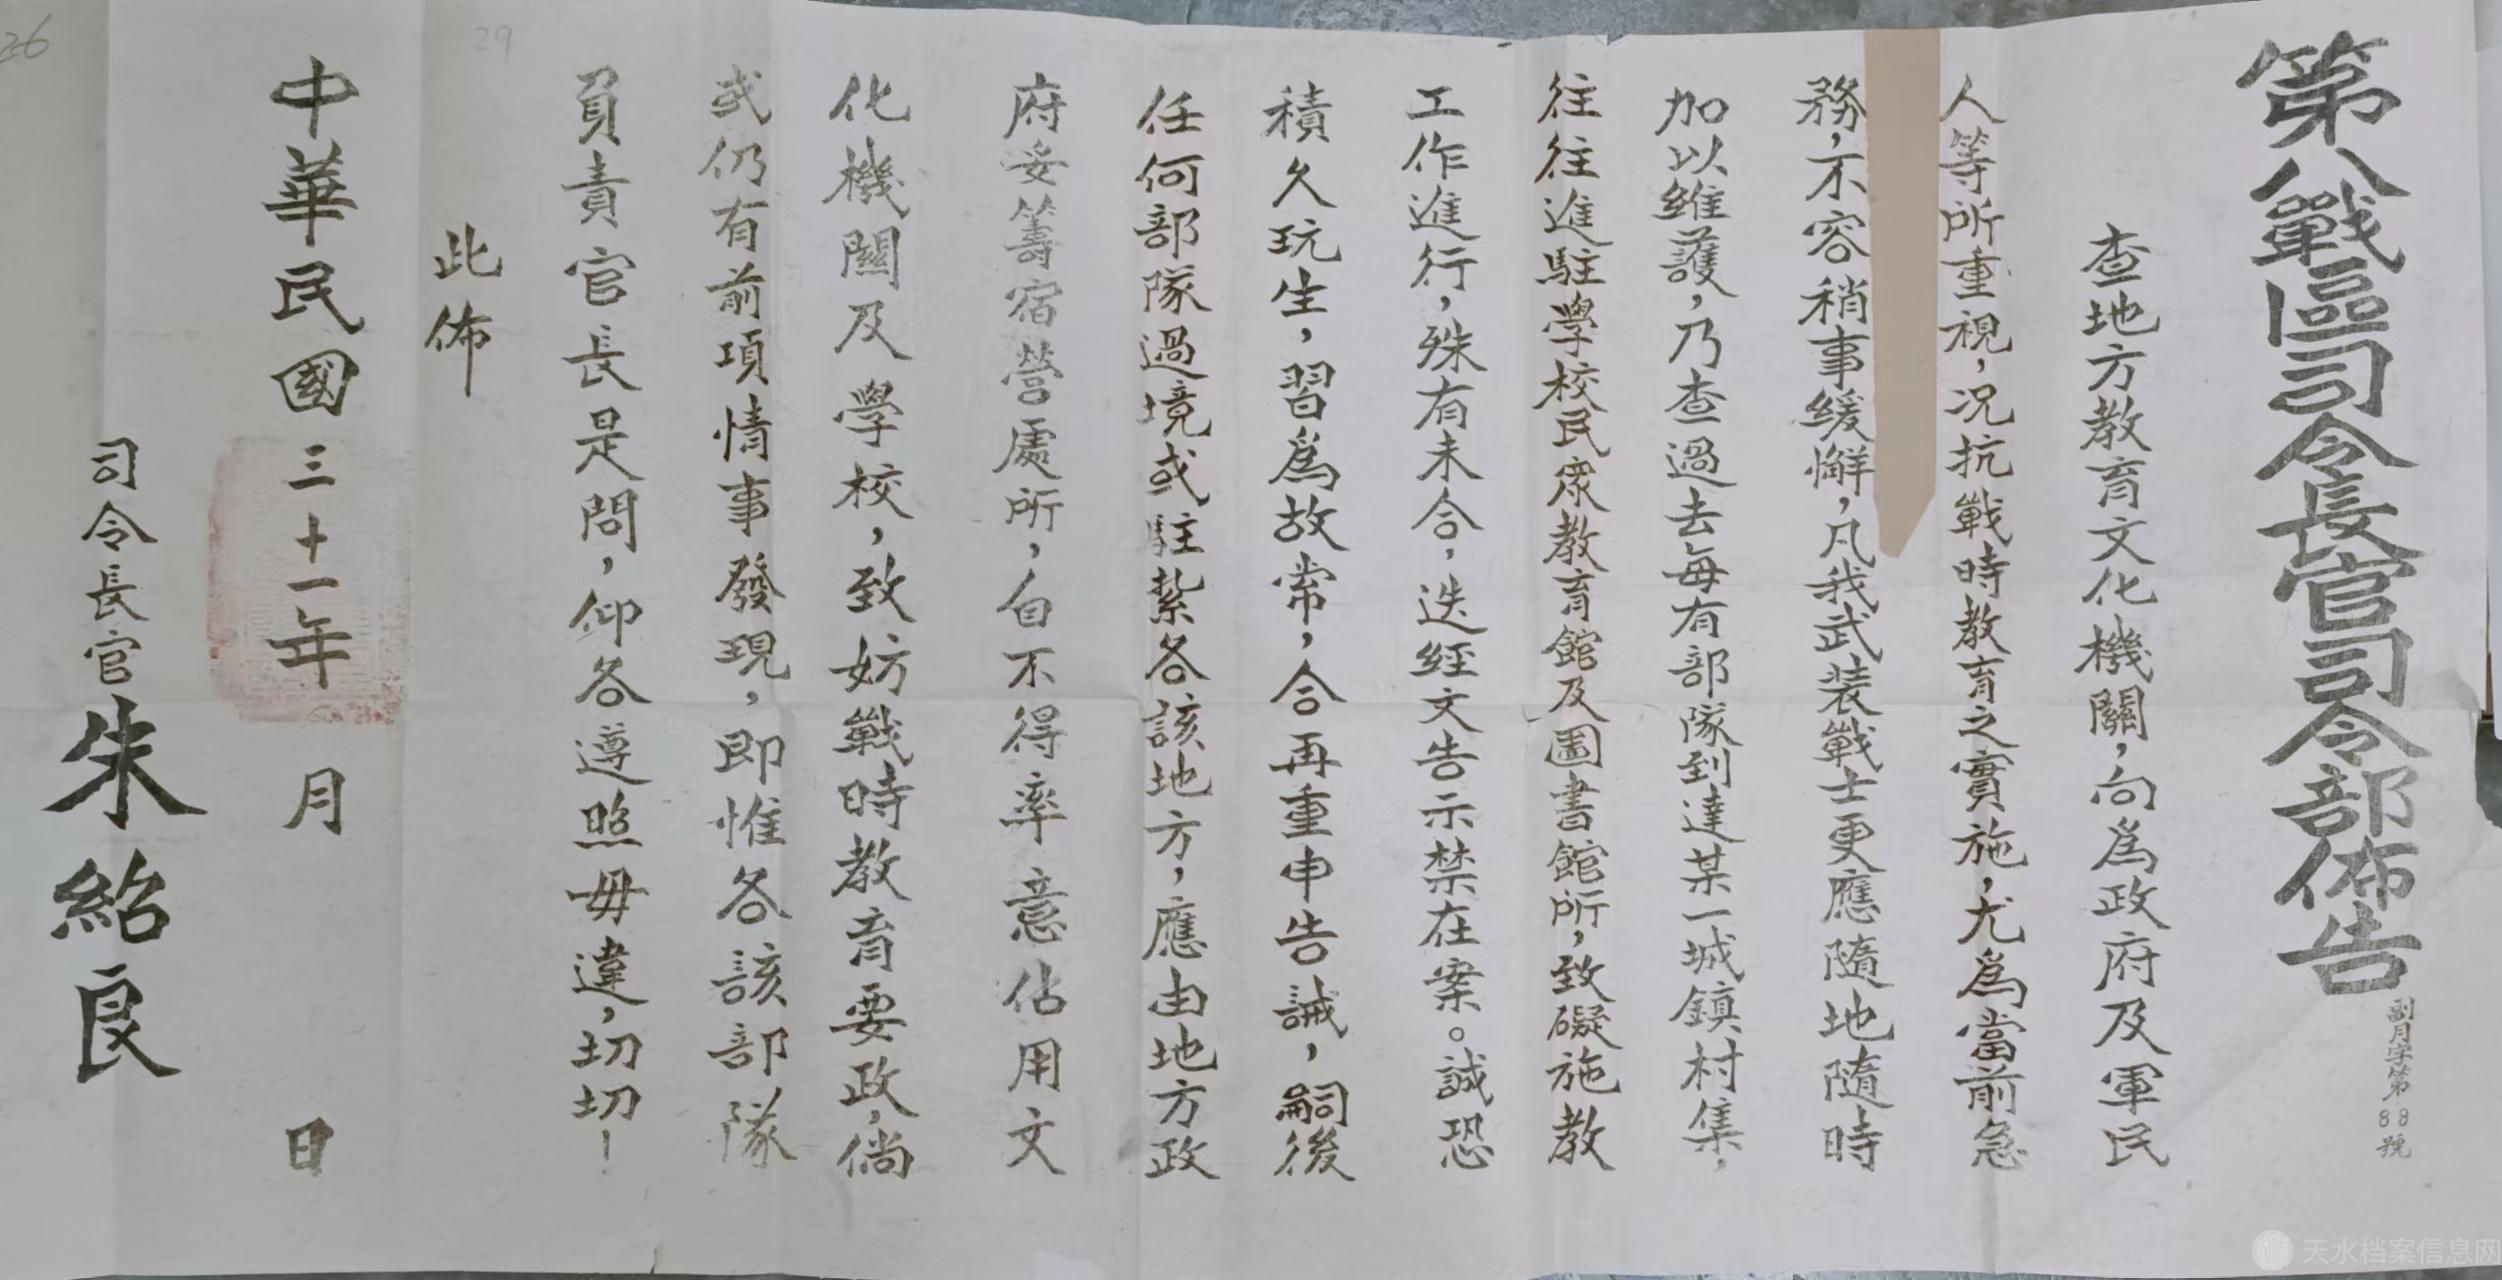 第八戰區司令長官司令部佈告
副月字第88號
查地方教育文化機關，向爲政府及軍民
人等所重視，况抗戰時教育之實施，尤爲當前急
務，不容稍事緩懈，凡我武装戰士更應隨地隨時
加以維護，乃查過去每有部隊到達某一城鎮村集，
往往進駐學校民眾教育館及圖書館所，致礙施教
工作進行，殊有未合，迭經文告示禁在案。誠恐
積久玩生，習爲故常，合再重申告誡，嗣後
任何部隊過境或駐紮各該地方，應由地方政
府妥籌宿營處所，自不得率意佔用文
化機關及學校，致妨戰時教育要政，倘
或仍有前項情事發現，即惟各該部隊
負責官長是問，仰各遵照毋違，切切！
此佈
中華民國三十一年 月 日
司令長官朱紹良
26
29
天水档案信息网